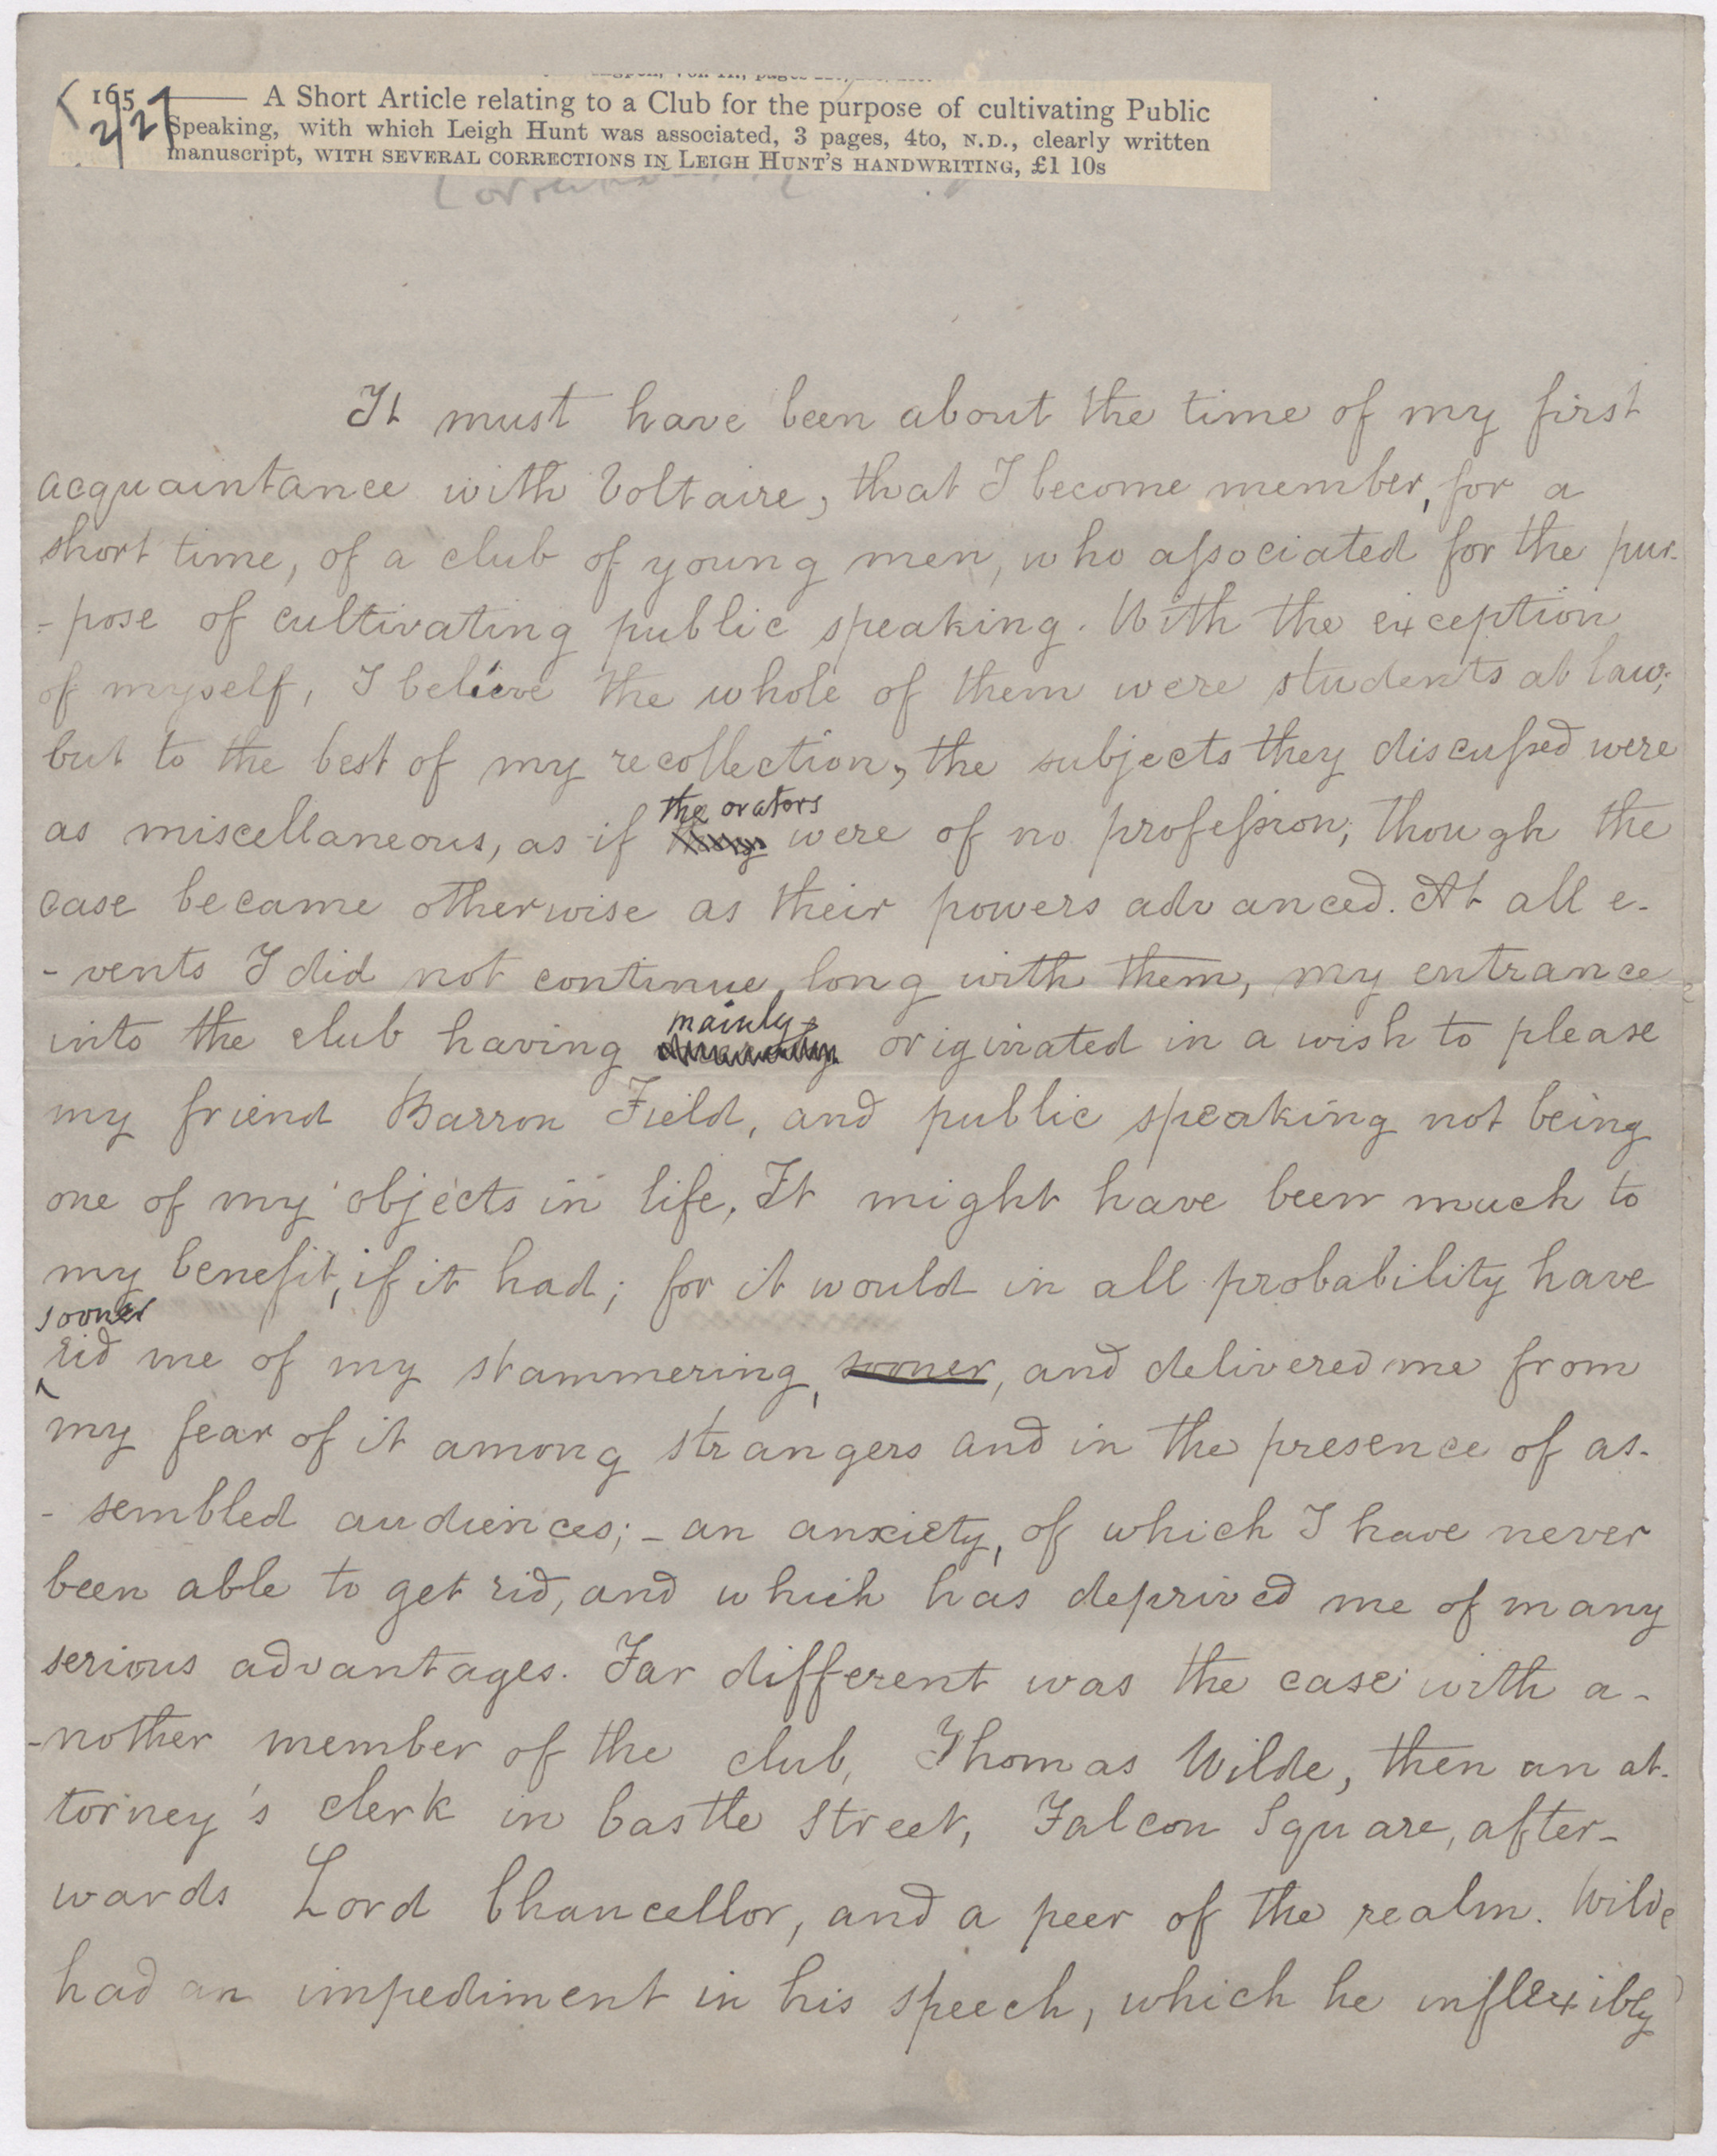 165 ——— A Short Article relating to a Club for the purpose of cultivating Public
2/27
Speaking, with which Leigh Hunt was associated, 3 pages, 4to, N.D., clearly written
manuscript, WITH SEVERAL CORRECTIONS IN LEIGH HUNT'S HANDWRITING, £1 10s
It must have been about the time of my first
acquaintance with Voltaire, that I become member, for a
short time, of a club of young men, who associated for the pur-
-pose of cultivating public speaking. With the exception
of myself, I believe the whole of them were students at law;
but to the best of my recollection, the subjects they discussed were
the orators
as miscellaneous, as if they were of no profession; though the
case became otherwise as their powers advanced. At all e-
-vents I did not continue, long with them, my entrance
mainly
into the club having originated in a wish to please
my friend Barron Field, and public speaking not being
one of my objects in life, It might have been much to
my benefit, if it had; for it would in all probability have
sooner
rid me of my stammering, sooner, and delivered me from
my fear of it among strangers and in the presence of as-
-sembled audiences; - an anxiety, of which I have never
been able to get rid, and which has deprived me of many
serious advantages. Far different was the case with a-
-nother member of the club, Thomas Wilde, then an at-
torney's clerk in Castle Street, Falcon Square, after-
wards Lord Chancellor, and a peer of the realm. Wilde
had an impediment in his speech, which he inflexibly